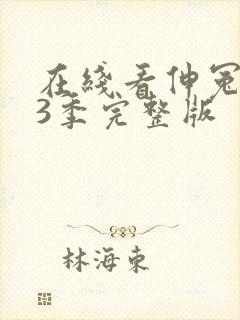 在綫看伸冤
3季完整版
林海東